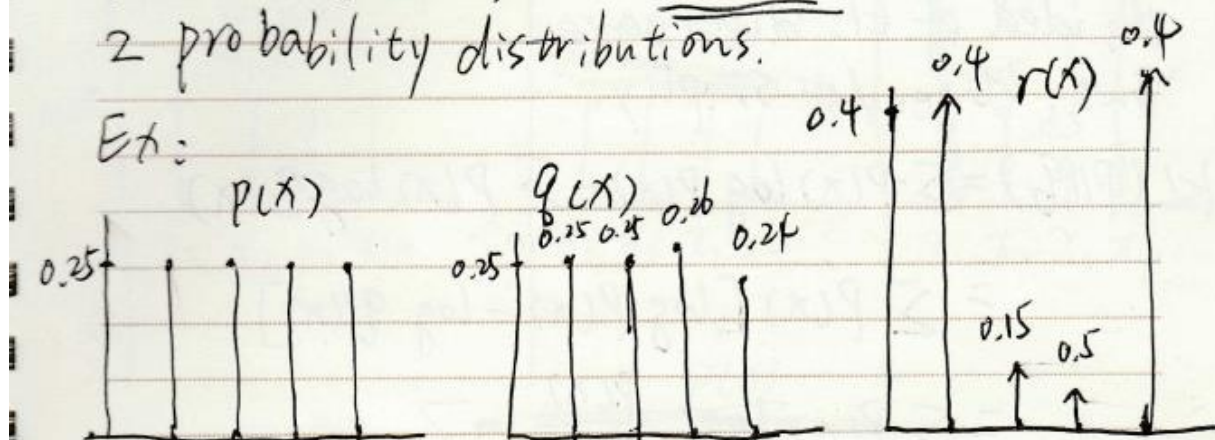 2 probability distributions.
Ex:
p(x)
0.25
q(x)
0.25 0.25 0.26 0.24
0.25
r(x)
0.4 0.4
0.4
0.15
0.5